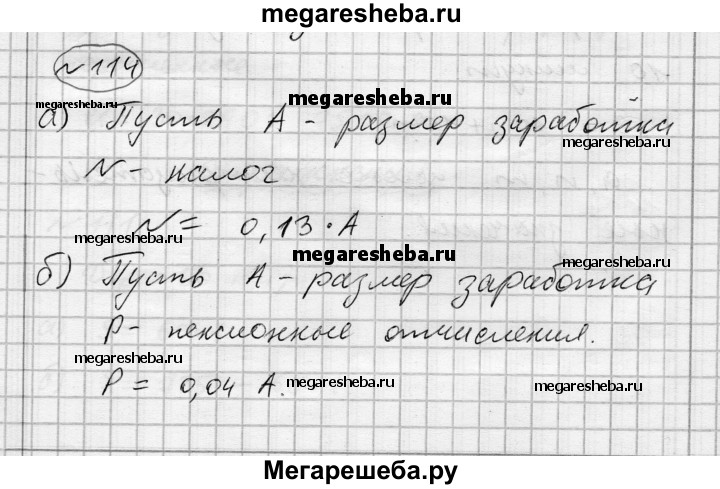 megaresheba.ru
№114
megaresheba.ru
а) Пусть А - размер заработка
megaresheba.ru megaresheba.ru
N - налог
N = 0,13·А
megaresheba.ru megaresheba.ru megaresheba.ru
б) Пусть А - размер заработка
Р - пенсионные отчисления.
megaresheba.ru
Р = 0,04 А.
megaresheba.ru megaresheba.ru
Мегарешеба.ру